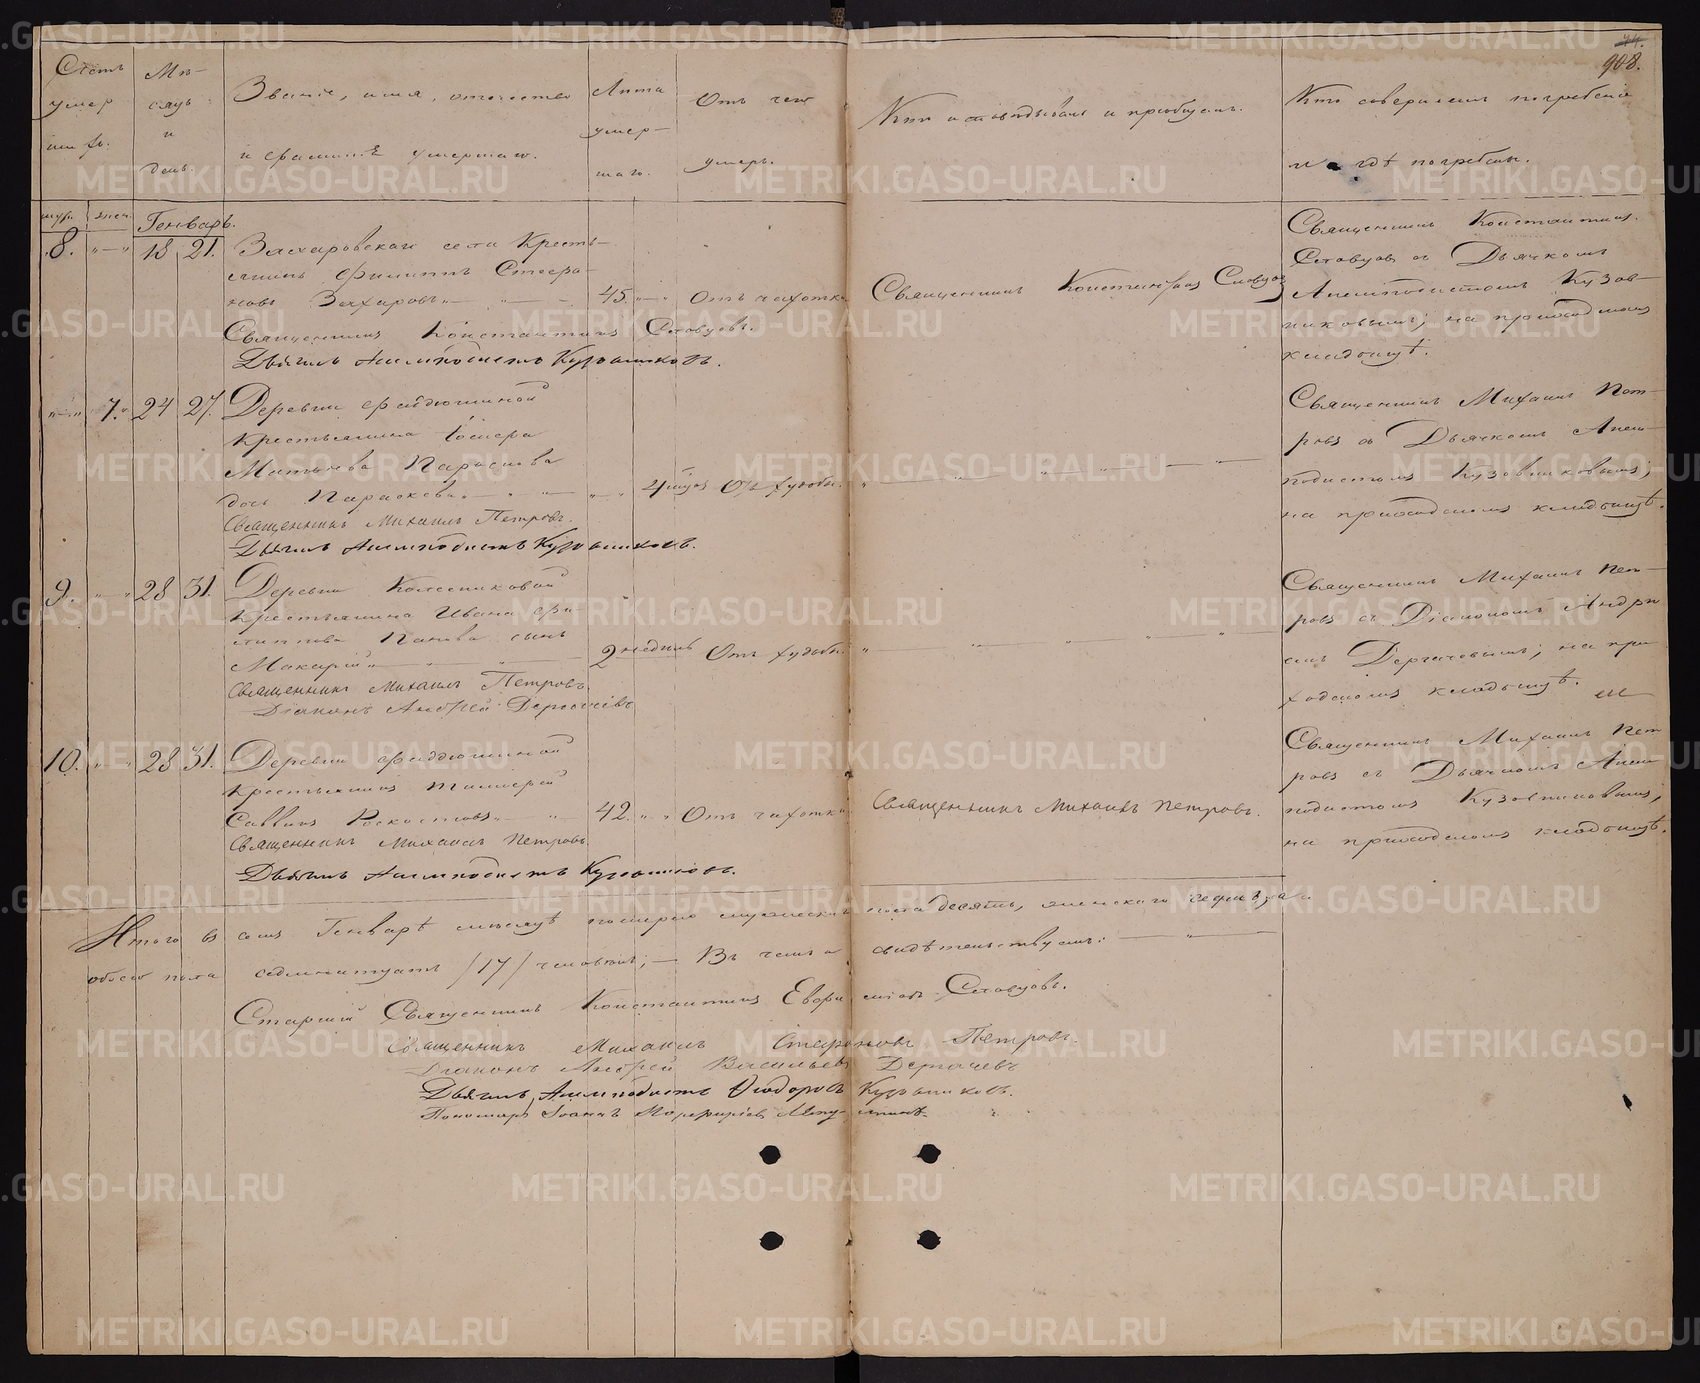 74.
908.
Счетъ умер шихъ.
Мѣсяцъ и день.
Званіе, имя, отчество
и фамилія умершаго.
Лѣта умер-
шаго.
Отъ чего
умеръ.
Кто исповѣдывалъ и пріобщалъ.
Кто совершалъ погребеніе
и гдѣ погребены.
муж. жен. Генварь.
8. 18 21.
Захаровскаго села Кресть-
янинъ Филиппъ Стефа-
новъ Захаровъ
45. Отъ чахотки
Священникъ Константинъ Словцовъ
Священникъ Константинъ Словцовъ.
Дьячекъ Анемподистъ Кузовниковъ.
Священникъ Константинъ
Словцовъ съ Дьячкомъ
Анемподистомъ Кузов-
никовымъ; на приходскомъ
кладбищѣ.
7. 24 27.
Деревни
Крестьянина
дочь Параскева
Отъ худобы.
Священникъ Михаилъ Петровъ.
Дьячекъ Анемподистъ Кузовниковъ.
Священникъ Михаилъ Пет-
ровъ съ Дьячкомъ Анем-
подистомъ Кузовниковымъ;
на приходскомъ кладбищѣ.
9. 28 31.
Деревни Колесниковой
Крестьянина Ивана Фи-
липпова Панова сынъ
Макарій
2 недѣль Отъ худобы.
Священникъ Михаилъ Петровъ.
Діаконъ Андрей Дергачевъ
Священникъ Михаилъ Пет-
ровъ съ Діакономъ Андре-
емъ Дергачевымъ; на при-
ходскомъ кладбищѣ.
10. 28 31.
Деревни
Крестьянинъ
Саввинъ
42. Отъ чахотки
Священникъ Михаилъ Петровъ.
Священникъ Михаилъ Петровъ
Дьячекъ Анемподистъ Кузовниковъ.
Священникъ Михаилъ Пет
ровъ съ Дьячкомъ Анем
подистомъ Кузовниковымъ;
на приходскомъ кладбищѣ.
Итого въ семъ Генварѣ мѣсяцѣ померло мужескаго пола десять, женскаго седмь, а
обоего пола седмнатцать /17/ человѣкъ; — Въ чемъ и свидѣтельствуемъ:
Старшій Священникъ Константинъ Словцовъ.
Священникъ Михаилъ Стефановъ Петровъ.
Діаконъ Андрей Васильевъ Дергачевъ
Дьячекъ Анемподистъ Ѳеодоровъ Кузовниковъ.
Пономарь Іоаннъ Порфиріевъ
METRIKI.GASO-URAL.RU